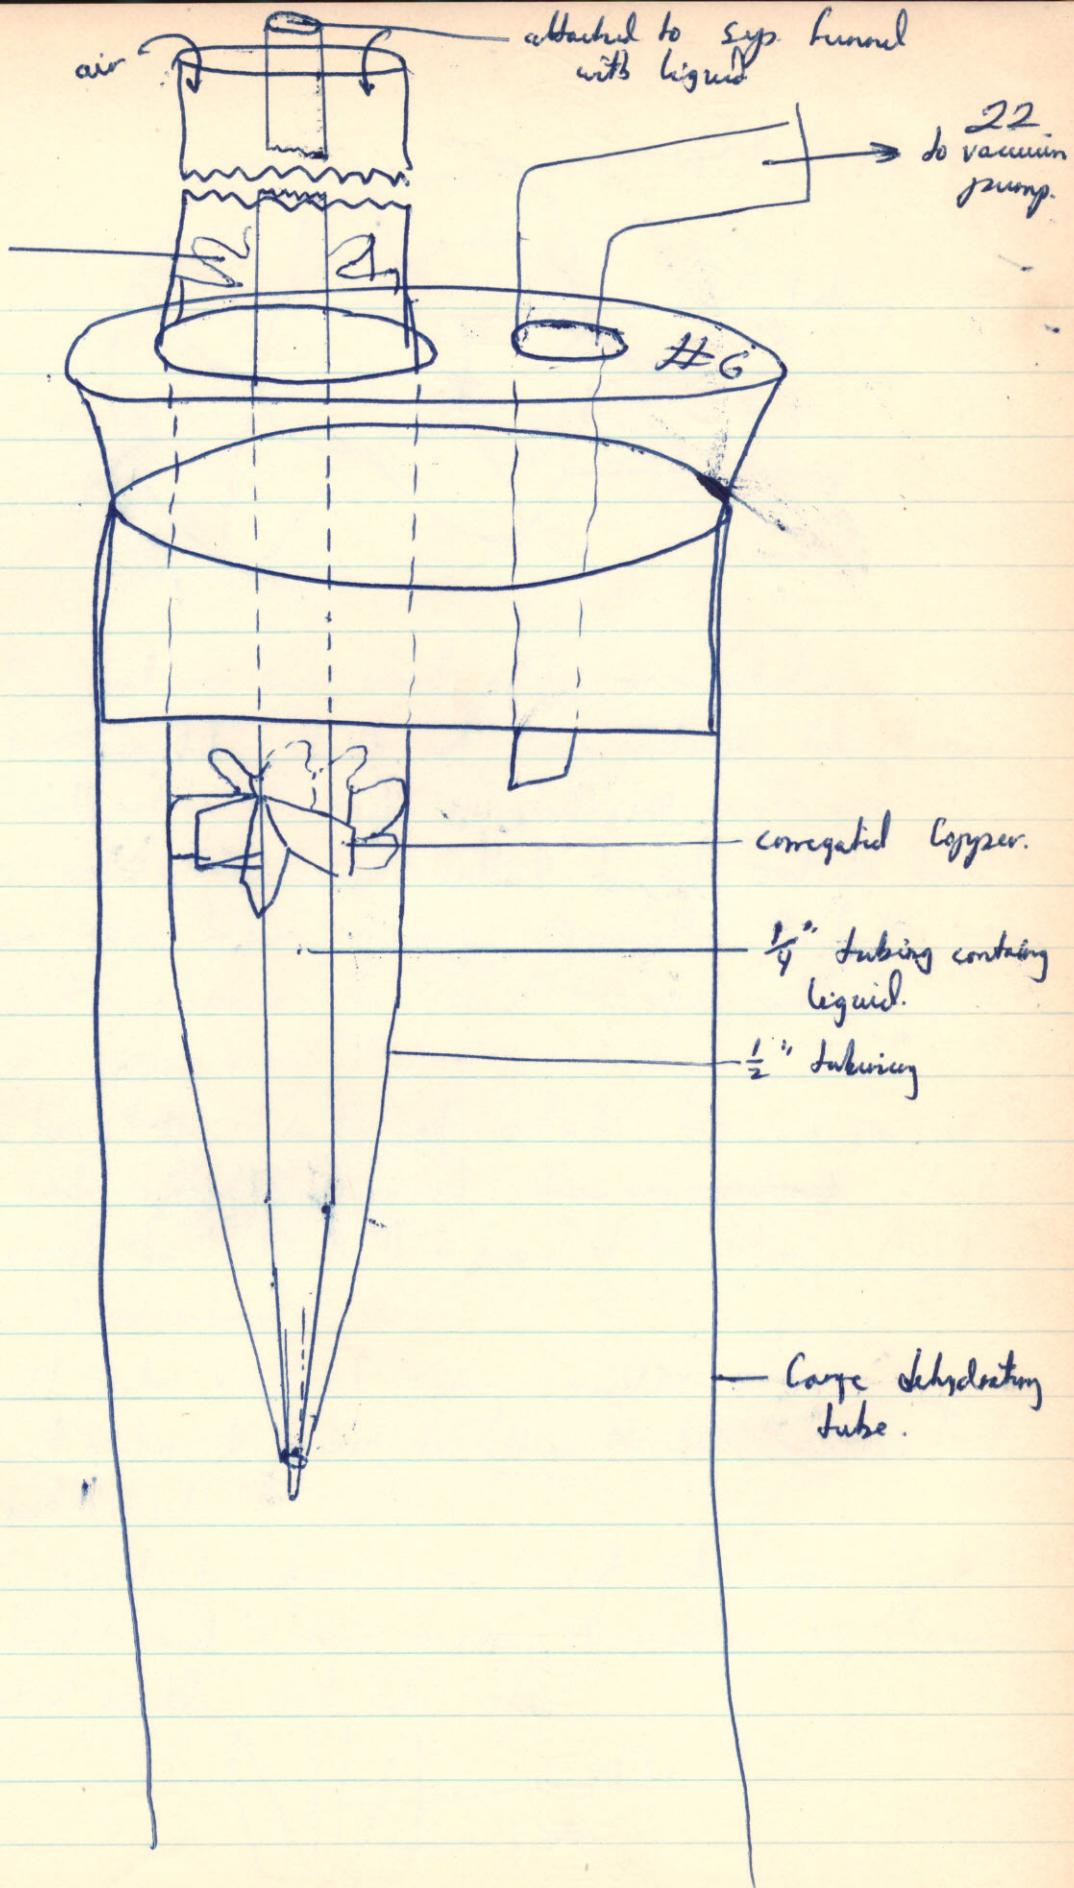 air
attached to sep. funnel
with liquid
22
to vacuum
pump.
#6
corregated Copper.
1/4" tubing containg
liquid.
1/2" tubuing
Large dehydrating
tube.